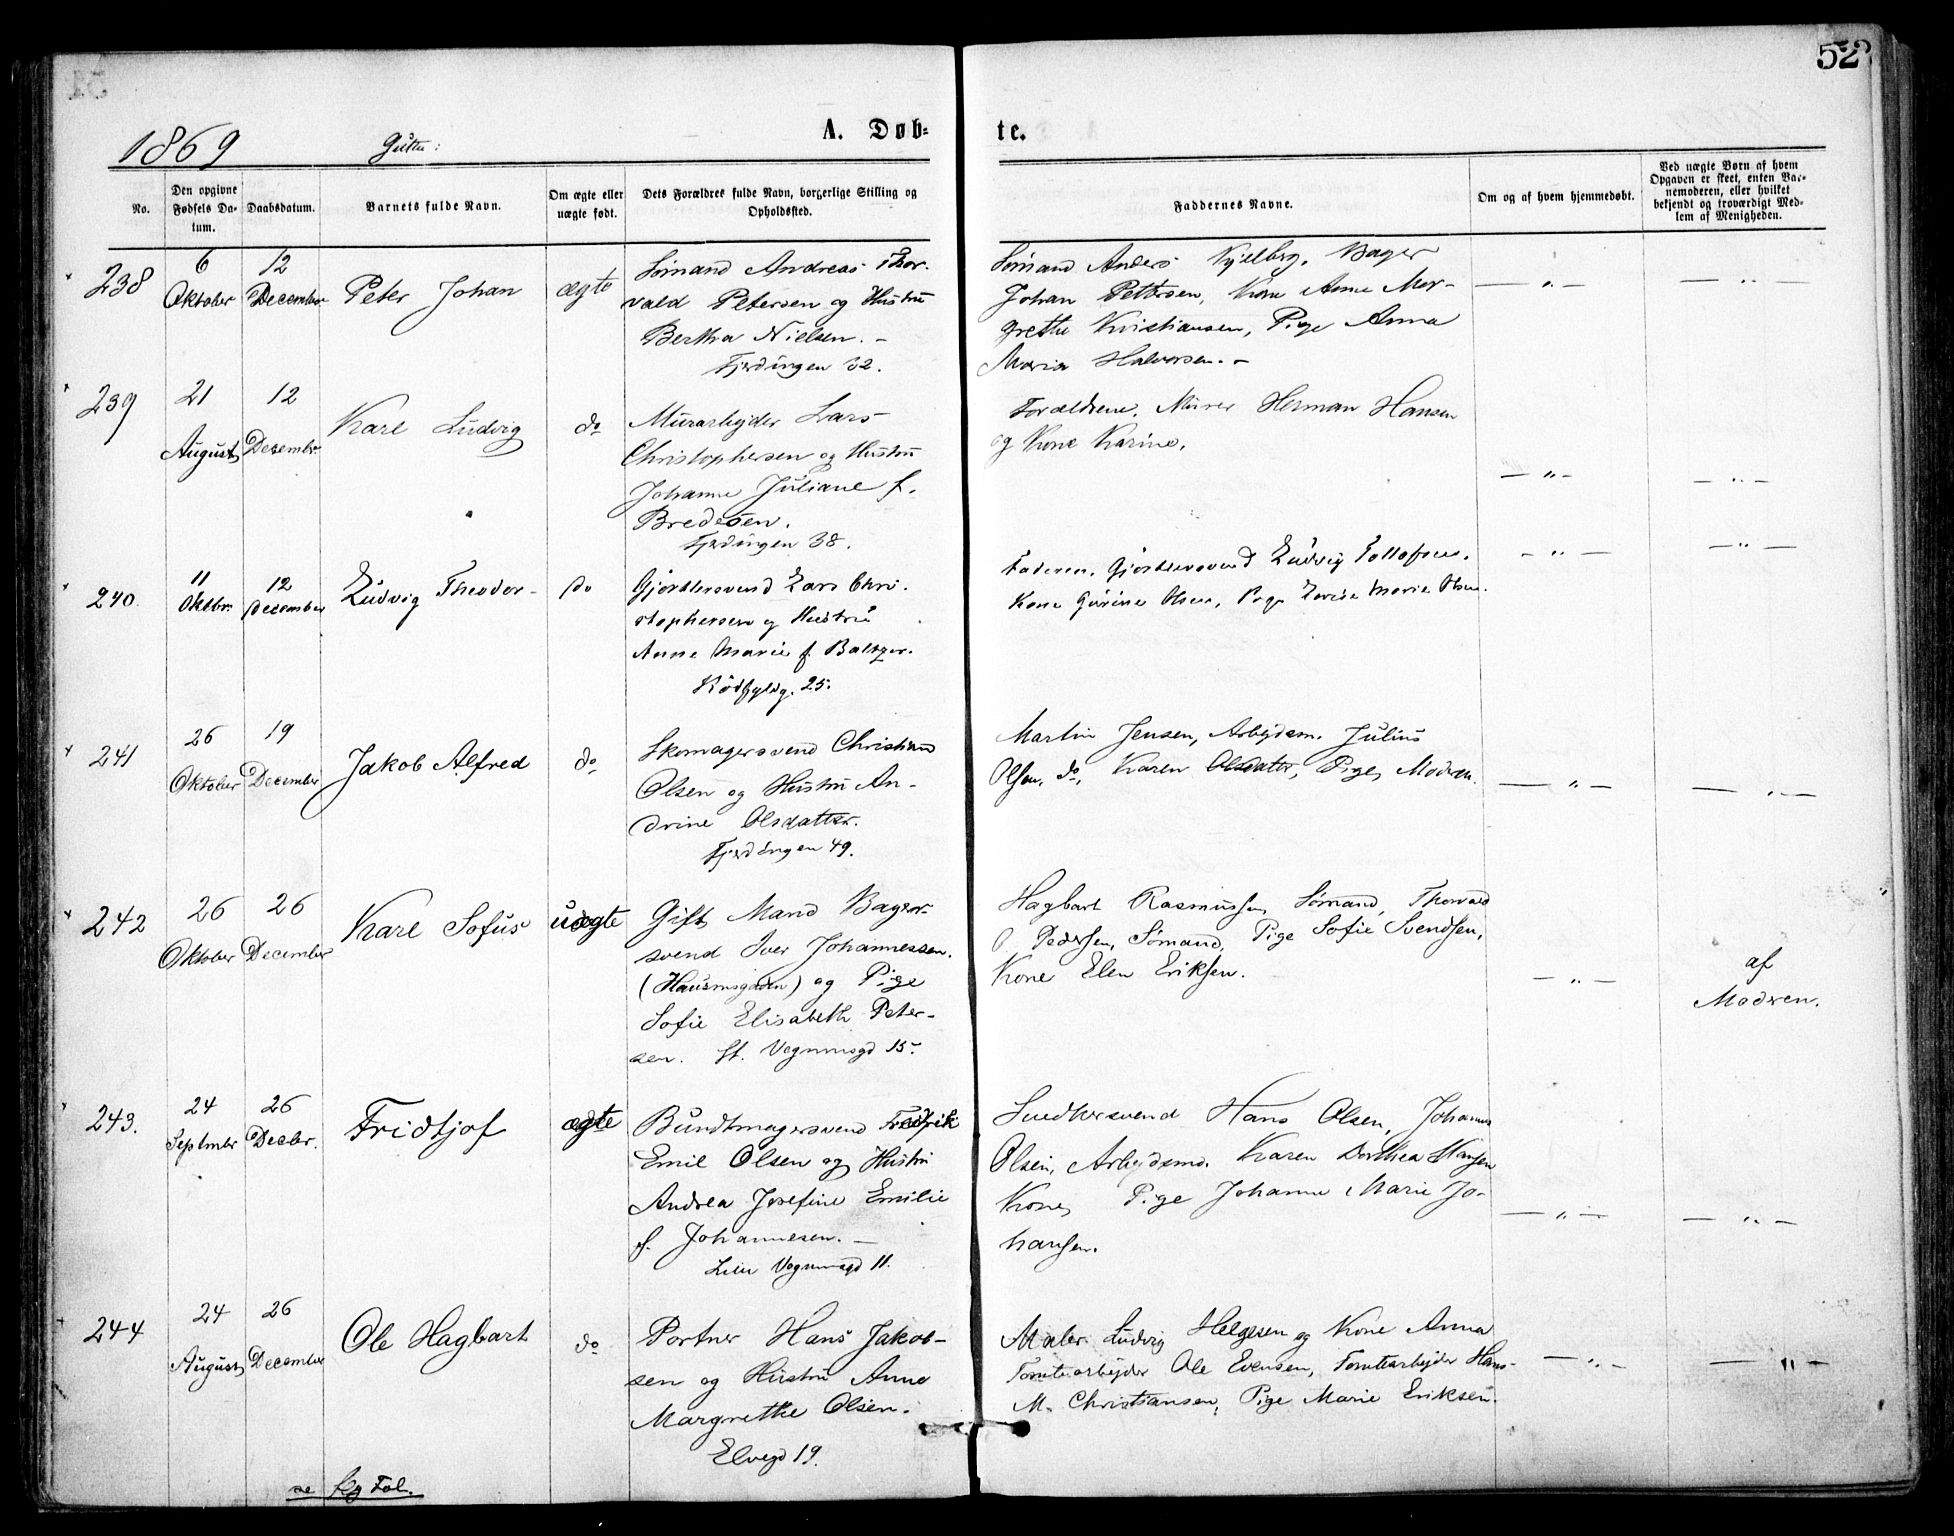 52
1869
Gutter:
A. Døb-
te.
No.
Den opgivne Fødsels Da-
tum.
Daabsdatum.
Barnets fulde Navn.
Om ægte eller
uægte født.
Dets Forældres fulde Navn, borgerlige Stilling og
Opholdssted.
Faddernes Navne.
Om og af hvem hjemmedøbt.
Ved uægte Børn af hvem
Opgaven er skeet, enten Bar-
nemoderen, eller hvilket
bekjendt og troværdigt Med-
lem af Menigheden.
238
6
Oktober
12
December
Peter Johan
ægte
Sømand Andreas Thor-
vald Petersen og Hustru
Bertha Nielsen. -
Fjerdingen 32.
Sømand Anders Kjelberg, Bager
Johan Pettersen, Kone Anne Mar-
grethe Kristiansen, Pige Anna
Maria Halvorsen. -
— „ —
— „ —
239
21
August
12
Desember
Karl Ludvig
do
Murarbejder Lars
Christophersen og Hustru
Johanne Juliane f.
Bredesen.
Fjerdingen 38.
Forældrene, Murer Herman Hansen
og Kone Karine.
— „ —
— „ —
240.
11
Oktbr.
12
December
Ludvig Theodor-
do
Gjørtlersvend Lars Chri-
stophersen og Hustru
Anne Marie f. Baltzer.
25.
Faderen, Gjørtlersvend Ludvig Tollofsen.
Kone Gurine Olsen, Pige Lovise Marie Olsen.
— „ —
— „ —
241
26
Oktober
19
December
Jakob Alfred
do
Skomagersvend Christian
Olsen og Hustru An-
drine Olsdatter.
Fjerdingen 49.
Martin Jensen, Arbejdsm. Julius
Olsen, do, Karen Olsdatter, Pige, Modren.
— „ —
— „ —
242
26
Oktober
26
December
Karl Sofus
uægte
Gift Mand Bager-
svend Iver Johannessen.
(Hausmsgaden) og Pige
Sofie Elisabeth Peter-
sen. St. Vognmsgd 15.
Hagbart Rasmussen, Sømand, Thorvald
Pedersen, Sømand, Pige Sofie Svendsen,
Kone Elen Eriksen.
— „ —
af
Modren.
243.
24
Septmber
26
Decbr.
Fridtjof
ægte
Bundtmagersvend Fredrik
Emil Olsen og Hustru
Andrea Josefine Emilie
f. Johannesen. —
Lille Vognmsgd 11.
Snedkersvend Hans Olsen, Johannes
Olsen, Arbejdsmd. Karen Dorthea Hansen
Kone, Pige Johanne Marie Jo-
hansen.
— „ —
— „ —
244
24
August
26
December
Ole Hagbart
do
Portner Hans Jakob-
sen og Hustru Anne
Margrethe Olsen.
Elvegd 19.
Maler Ludvig Helgesen og Kone Anna
Tomtearbejder Ole Evensen, Tomtearbejder Hans
M. Christiansen, Pige Marie Eriksen.
— „ —
— „ —
se Fol.